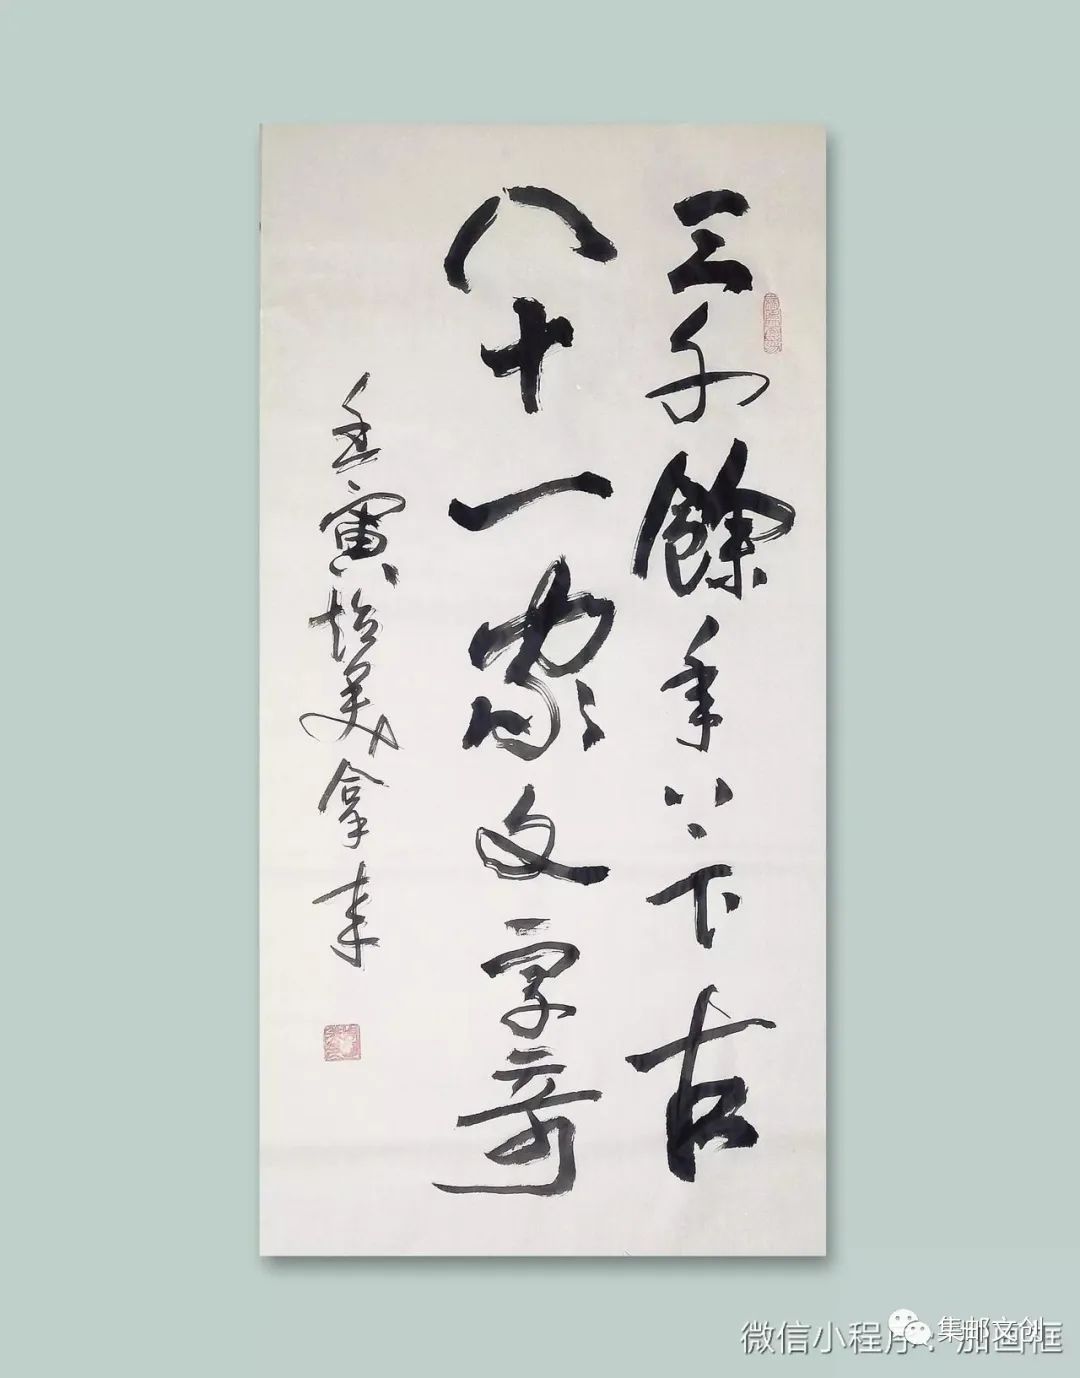 三千餘年八卞古
八十一家文字奇
壬寅 美拿来
微信小程序：加画框
集邮文创